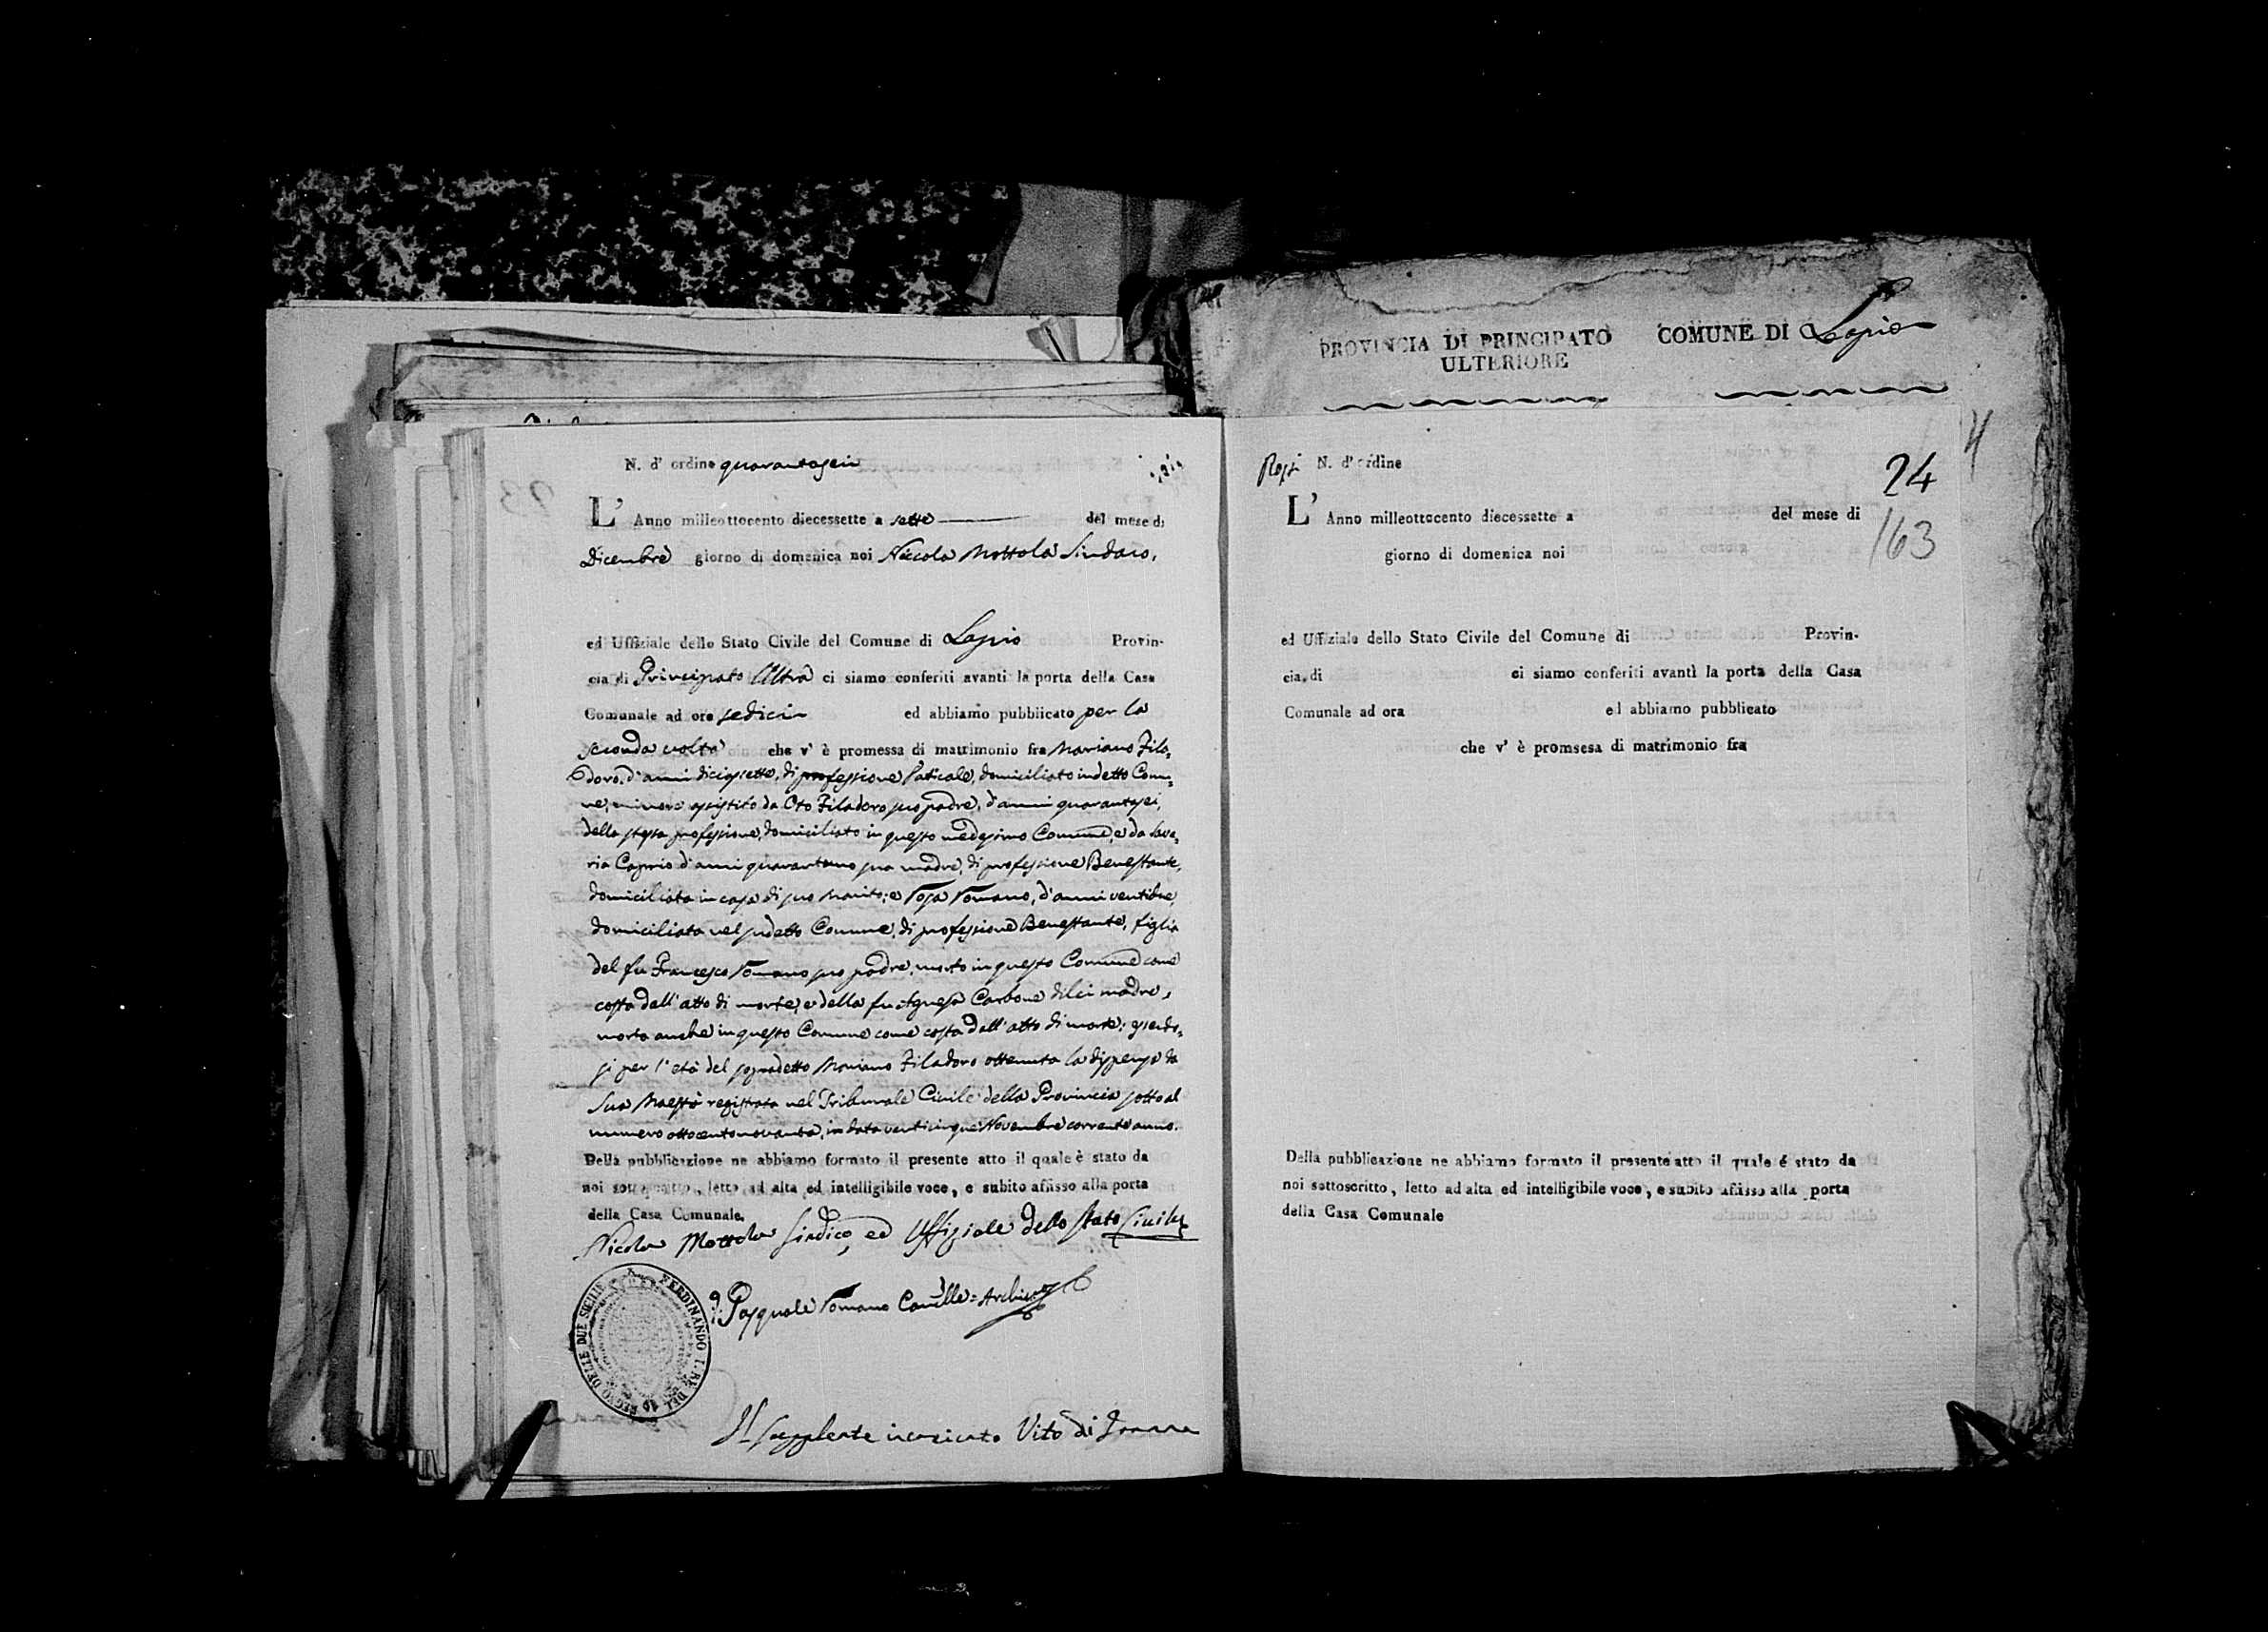 N. d' ordine quarantasei
L' Anno milleottocento diecessette a sette del mese di
Dicembre giorno di domenica noi Niccola Mottola Sindaco,
ed Uffiziale dello Stato Civile del Comune di Lapio Provin-
cia di Principato Ultra ci siamo conferiti avanti la porta della Casa
Comunale ad ore sedici ed abbiamo pubblicato per la
seconda volta che v' è promessa di matrimonio fra Mariano Fila=
doro, d'anni diciassette, di professione, domiciliato in detto Comu=
ne, minore assistito da Oto Filadoro suo padre, d'anni quarantasei,
della stessa professione, domiciliato in questo medesimo Comune, e da Save=
ria Caprio d'anni quarantuno sua madre, di professione Benestante,
domiciliata in casa di suo Marito; e Rosa Romano, d'anni ventitre,
domiciliata nel sudetto Comune, di professione Benestante, figlia
del fu Francesco Romano suo padre, morto in questo Comune come
costa dall'atto di morte, e della fu Agnesa Carbone di lei madre,
morta anche in questo Comune come costa dall'atto di morte; essendo=
si per l'età del sopradetto Mariano Filadoro ottenuta la dispensa da
Sua Maestà registrata nel Tribunale Civile della Provincia sotto al
numero ottocentonovanta, in data venticinque Novembre corrente anno.
Della pubblicazione ne abbiamo formato il presente atto il quale è stato da
noi sottoscritto, letto ad alta ed intelligibile voce, e subito affisso alla porta
della Casa Comunale.
Nicola Mottola Sindico, ed Uffiziale dello Stato Civile
Pasquale Romano
FERDINANDO I. RE DEL REGNO DELLE DUE SICILIE
Il supplente incaricato Vito di
PROVINCIA DI PRINCIPATO COMUNE DI Lapio
ULTERIORE
4
N. d' ordine
24
L' Anno milleottocento diecessette a del mese di
163
giorno di domenica noi
ed Uffiziale dello Stato Civile del Comune di Provin-
cia di ci siamo conferiti avanti la porta della Casa
Comunale ad ora ed abbiamo pubblicato
che v' è promsesa di matrimonio fra
Della pubblicazione ne abbiamo formato il presente atto il quale é stato da
noi sottoscritto, letto ad alta ed intelligibile voce, e subito affisso alla porta
della Casa Comunale